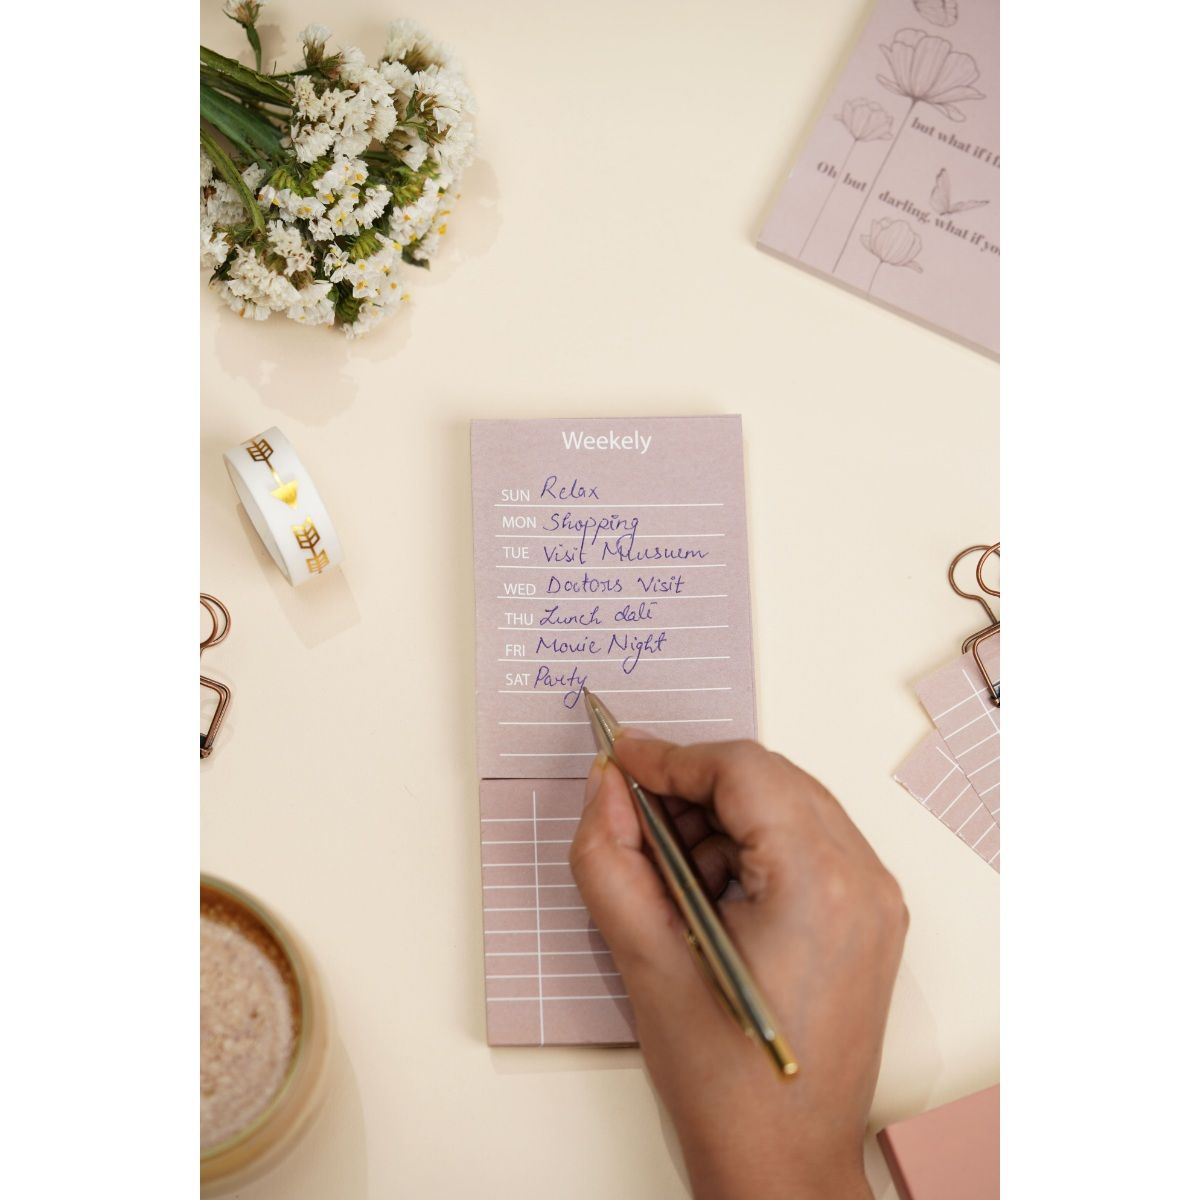 but what if i
Oh but
darling, what if you
Weekely
SUN Relax
MON Shopping
TUE Visit Muusuem
WED Doctors Visit
THU Lunch date
FRI Movie Night
SAT Party